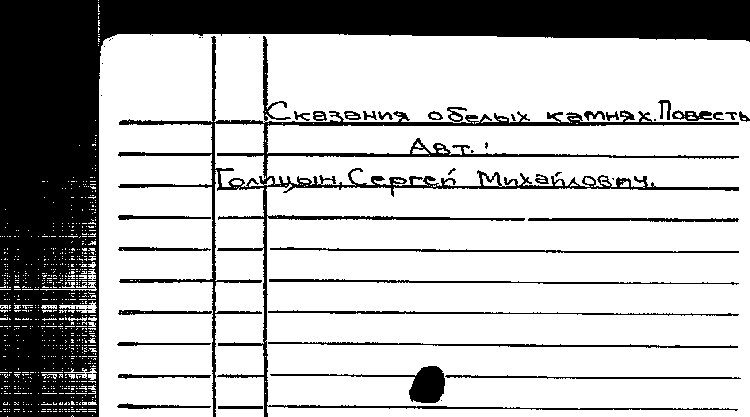 Сказания о белых камнях. Повесть
Авт.:
Голицын, Сергей Михайлович.